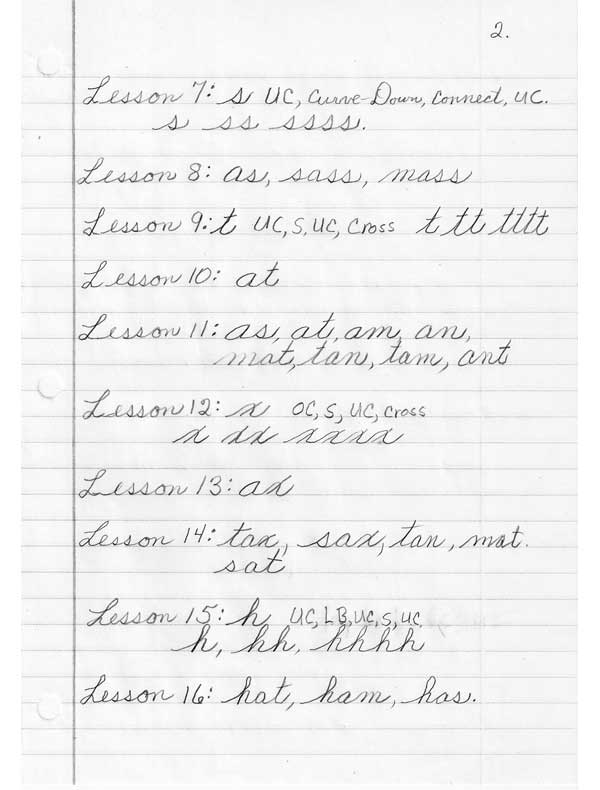 2.
Lesson 7: s UC, Curve-Down, Connect, UC.
s ss ssss.
Lesson 8: as, sass, mass
Lesson 9: t UC, S, UC, Cross t tt tttt
Lesson 10: at
Lesson 11: as, at, am, an,
mat, tan, tam, ant
Lesson 12: x OC, S, UC, Cross
x xx xxxx
Lesson 13: ax
Lesson 14: tax, sax, tan, mat.
sat
Lesson 15: h UC, LB, UC, S, UC
h, hh, hhhh
Lesson 16: hat, ham, has.